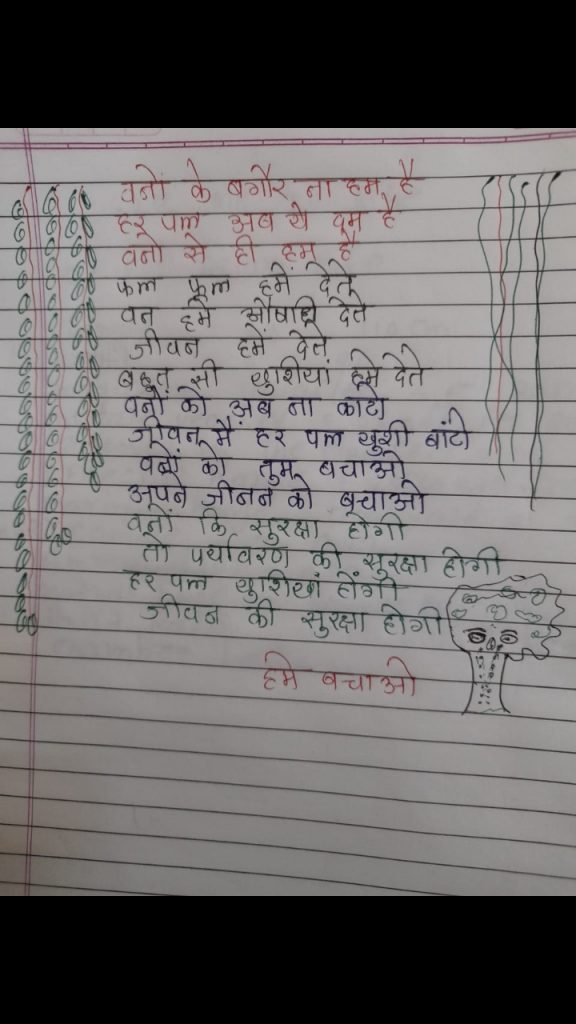 वनों के बगैर ना हम है
हर पल अब ये दम है
वनो से ही हम है
फल फूल हमें देते
वन हमे औषधि देते
जीवन हमें देते
बहुत सी खुशियां हमे देते
वनों को अब ना काटो
जीवन मै हर पल खुशी बांटो
वनों को तुम बचाओ
अपने जीनन को बचाओ
वनों कि सुरक्षा होगी
तो पर्यावरण की सुरक्षा होगी
हर पल खुशियां होंगी
जीवन की सुरक्षा होगी
हमे बचाओ